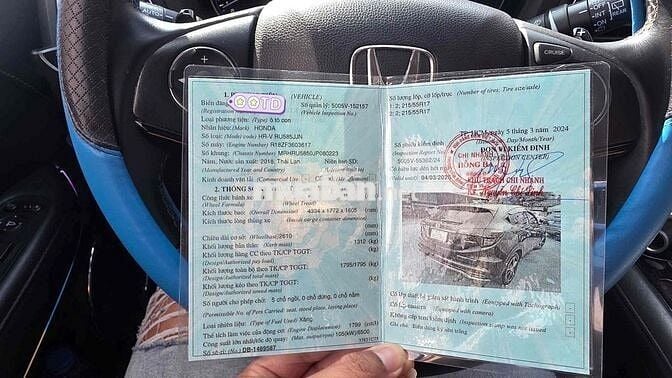 (VEHICLE)
Biển đăng
(Registration
OOTD
Số quản lý: 5005V-152157
(Vehicle Inspection No.)
Loại phương tiện: (Type) ô tô con
Nhãn hiệu: (Mark) HONDA
Số loại: (Model code) HR-V RU585JJN
Số động cơ: (Engine Number) R18ZF3603617
Số khung: (Chassis Number) MRHRU5850JP080223
Năm, Nước sản xuất: 2018, Thái Lan
Niên hạn SD:
(Manufactured Year and Country)
Kinh doanh vận tải
2. THÔNG SỐ
Công thức bánh xe:
(Wheel Formula)
(Wheel Tread)
Kích thước bao: (Overall Dimension) 4334 x 1772 x 1605 (mm)
Kích thước lòng thùng xe
(Inside cargo container dimension)
(mm)
Chiều dài cơ sở: (Wheelbase) 2610 (mm)
Khối lượng bản thân: (Kerb mass) 1312 (kg)
Khối lượng hàng CC theo TK/CP TGGT:
(Design/Authorized pay load) (kg)
Khối lượng toàn bộ theo TK/CP TGGT: 1795/1795 (kg)
(Design/Authorized total mass)
Khối lượng kéo theo TK/CP TGGT:
(Design/Authorized towed mass) (kg)
Số người cho phép chở: 5 chỗ ngồi, 0 chỗ đứng, 0 chỗ nằm
(Permissible No. of Pers Carried: seat, stood place, laying place)
Loại nhiên liệu: (Type of Fuel Used) Xăng
Thể tích làm việc của động cơ: (Engine Displacement) 1799 (cm3)
Công suất lớn nhất/tốc độ quay: (Max. output/rpm) 105(kW)/6500
Số sê-ri: (No.) DB-1469587
Số lượng lốp, cỡ lốp/trục (Number of tires; Tire size/axle)
1: 2; 215/55R17
2: 2; 215/55R17
5 tháng 3 năm 2024
(Issued on: Day/Month/Year)
Số phiếu kiểm định
(Inspection Report No)
5005V-55362/24
ĐƠN VỊ KIỂM ĐỊNH
(INSPECTION CENTER)
Có hiệu lực đến hết ngày
04/03/20
CHI NHÁNH
PHỤ TRÁCH CHI NHÁNH
Có lắp thiết bị giám sát hành trình (Equipped with Tachograph)
(Equipped with camera)
Không cấp tem kiểm định (Inspection stamp was not issued)
Ghi chú: Biển đăng ký nền trắng
AUTO
CRUISE
OFF
INT
ON
REAR